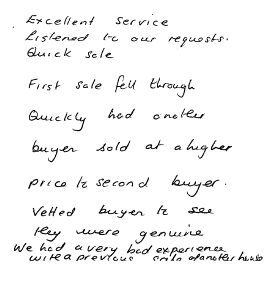 Excellent service
Listened to our requests.
Quick sale
First sale fell through
Quickly had another
buyer sold at a higher
price to second buyer.
Vetted buyer to see
they were genuine
We had a very bad experience
with a previous of another house